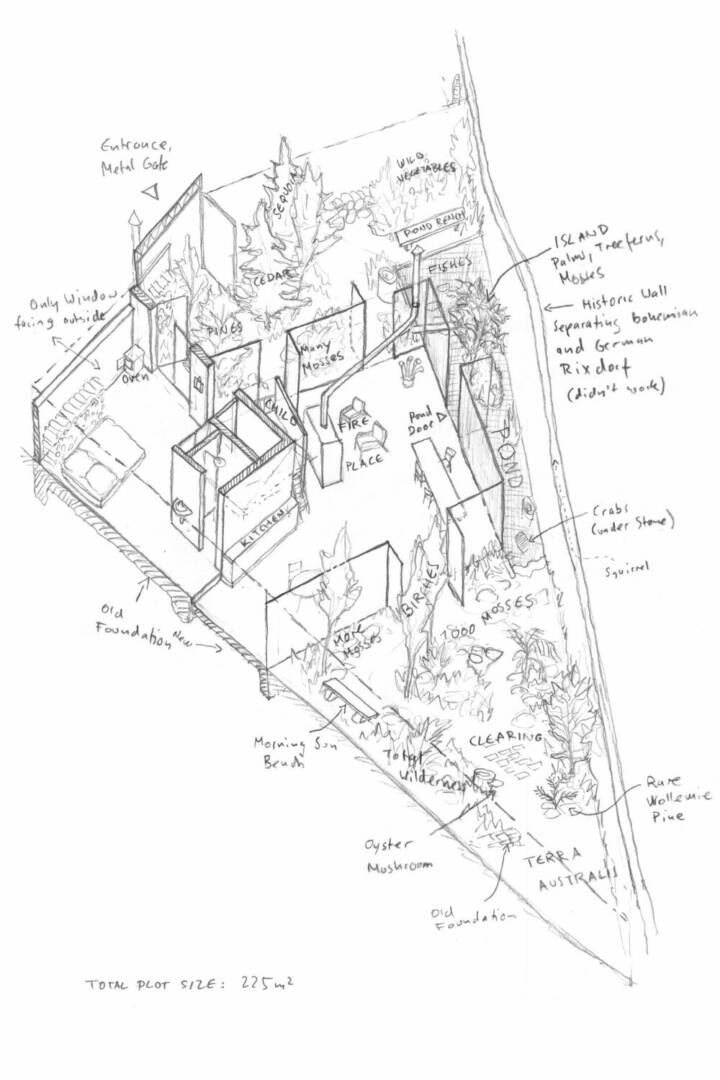 Entrance,
Metal Gate
SEQUOIA
WILD
VEGETABLES
POND BENCH
FISHES
ISLAND
Palms, Treeferns,
Mosses
CEDAR
Historic Wall
Separating bohemian
and German
Rixdorf
(didn't work)
Only Window
facing outside
PINES
Many
Mosses
Oven
CHILD
FIRE
PLACE
Pond
Door
POND
KITCHEN
Crabs
(under Stone)
Squirrel
Old
Foundation
New
BIRCHES
1000 MOSSES
More
Mosses
Morning Sun
Bench
CLEARING
Total
Wilderness
Rare
Wollemie
Pine
Oyster
Mushroom
TERRA
AUSTRALIS
Old
Foundation
TOTAL PLOT SIZE: 225m²